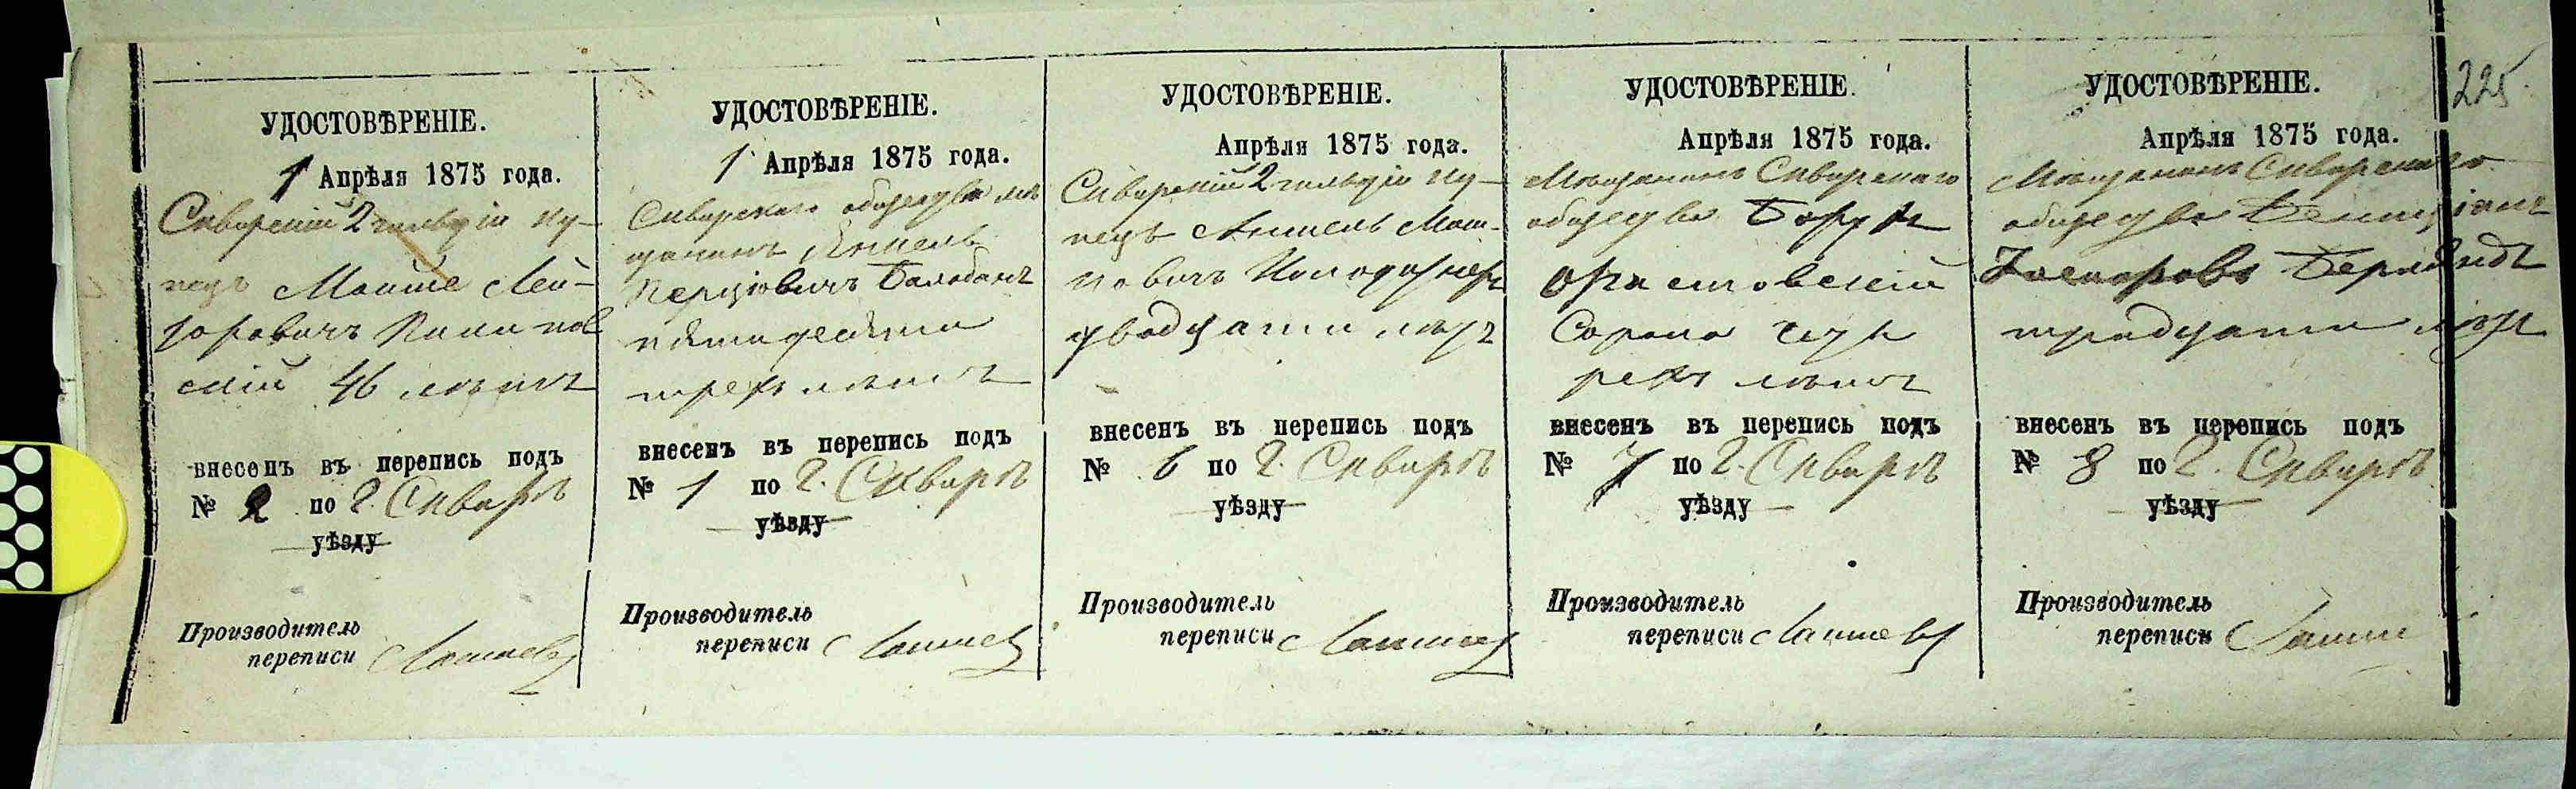 225.
УДОСТОВѢРЕНІЕ.
1 Апрѣля 1875 года.
Сквирскій 2 гильдіи ку-
пецъ Моише Лей-
зоровичъ
скій 46 лѣтъ
внесенъ въ перепись подъ
№ 2 по г. Сквирѣ
уѣзду
Производитель
переписи
УДОСТОВѢРЕНІЕ.
1 Апрѣля 1875 года.
Сквирскаго общества мѣ
щанинъ Янкель
Перціовичъ Балабанъ
пятидесяти
трехъ лѣтъ
внесенъ въ перепись подъ
№ 1 по г. Сквирѣ
уѣзду
Производитель
переписи
УДОСТОВѢРЕНІЕ.
Апрѣля 1875 года.
Сквирскій 2 гильдіи ку-
пецъ Аншель Мош-
ковичъ
двадцати лѣтъ
внесенъ въ перепись подъ
№ 6 по г. Сквирѣ
уѣзду
Производитель
переписи
УДОСТОВѢРЕНІЕ.
Апрѣля 1875 года.
Мѣщанинъ Сквирскаго
общества Борух
Сорока чет
рехъ лѣтъ
внесенъ въ перепись подъ
№ 7 по г. Сквирѣ
уѣзду
Производитель
переписи
УДОСТОВѢРЕНІЕ.
Апрѣля 1875 года.
Мѣщанинъ Сквирскаго
общества
тридцати лѣтъ
внесенъ въ перепись подъ
№ 8 по г. Сквирѣ
уѣзду
Производитель
переписи